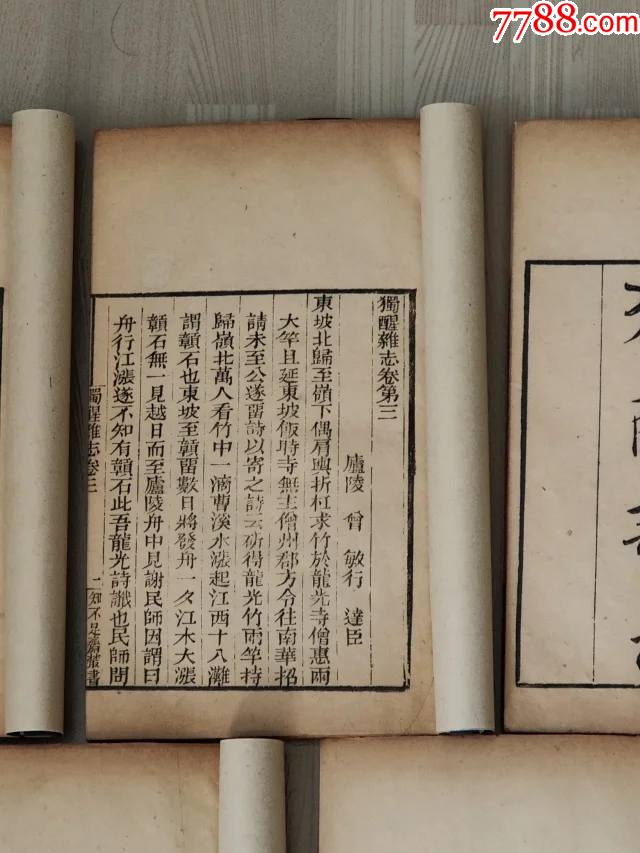 7788.com
獨醒雜志卷第三
廬陵 曾 敏行 達臣
東坡北歸至嶺下偶肩輿折杠求竹於龍光寺僧惠兩
大竿且延東坡飯時寺無主僧州郡方令往南華招
請未至公遂畱詩以寄之詩云斫得龍光竹兩竿持
歸嶺北萬人看竹中一滴曹溪水漲起江西十八灘
謂贛石也東坡至贛畱數日將發舟一夕江水大漲
贛石無一見越日而至廬陵舟中見謝民師因謂曰
舟行江漲遂不知有贛石此吾龍光詩讖也民師問
獨醒雜志卷三
一
知不足齋叢書